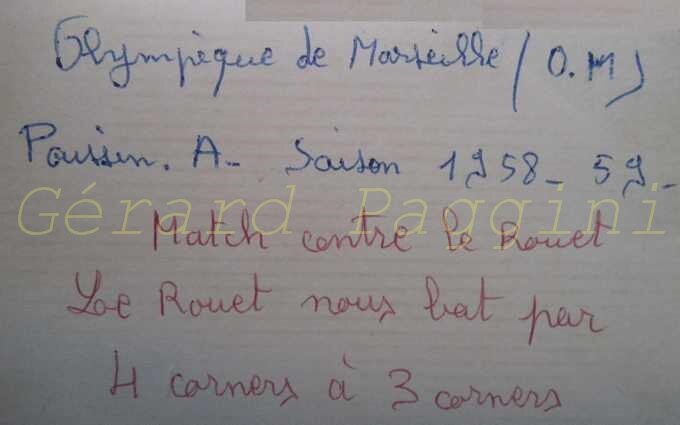 Olympique de Marseille (O.M)
Poussin. A- Saison 1958-59-
Gérard Paggini
Match contre le Rouet
Le Rouet nous bat par
4 corners à 3 corners